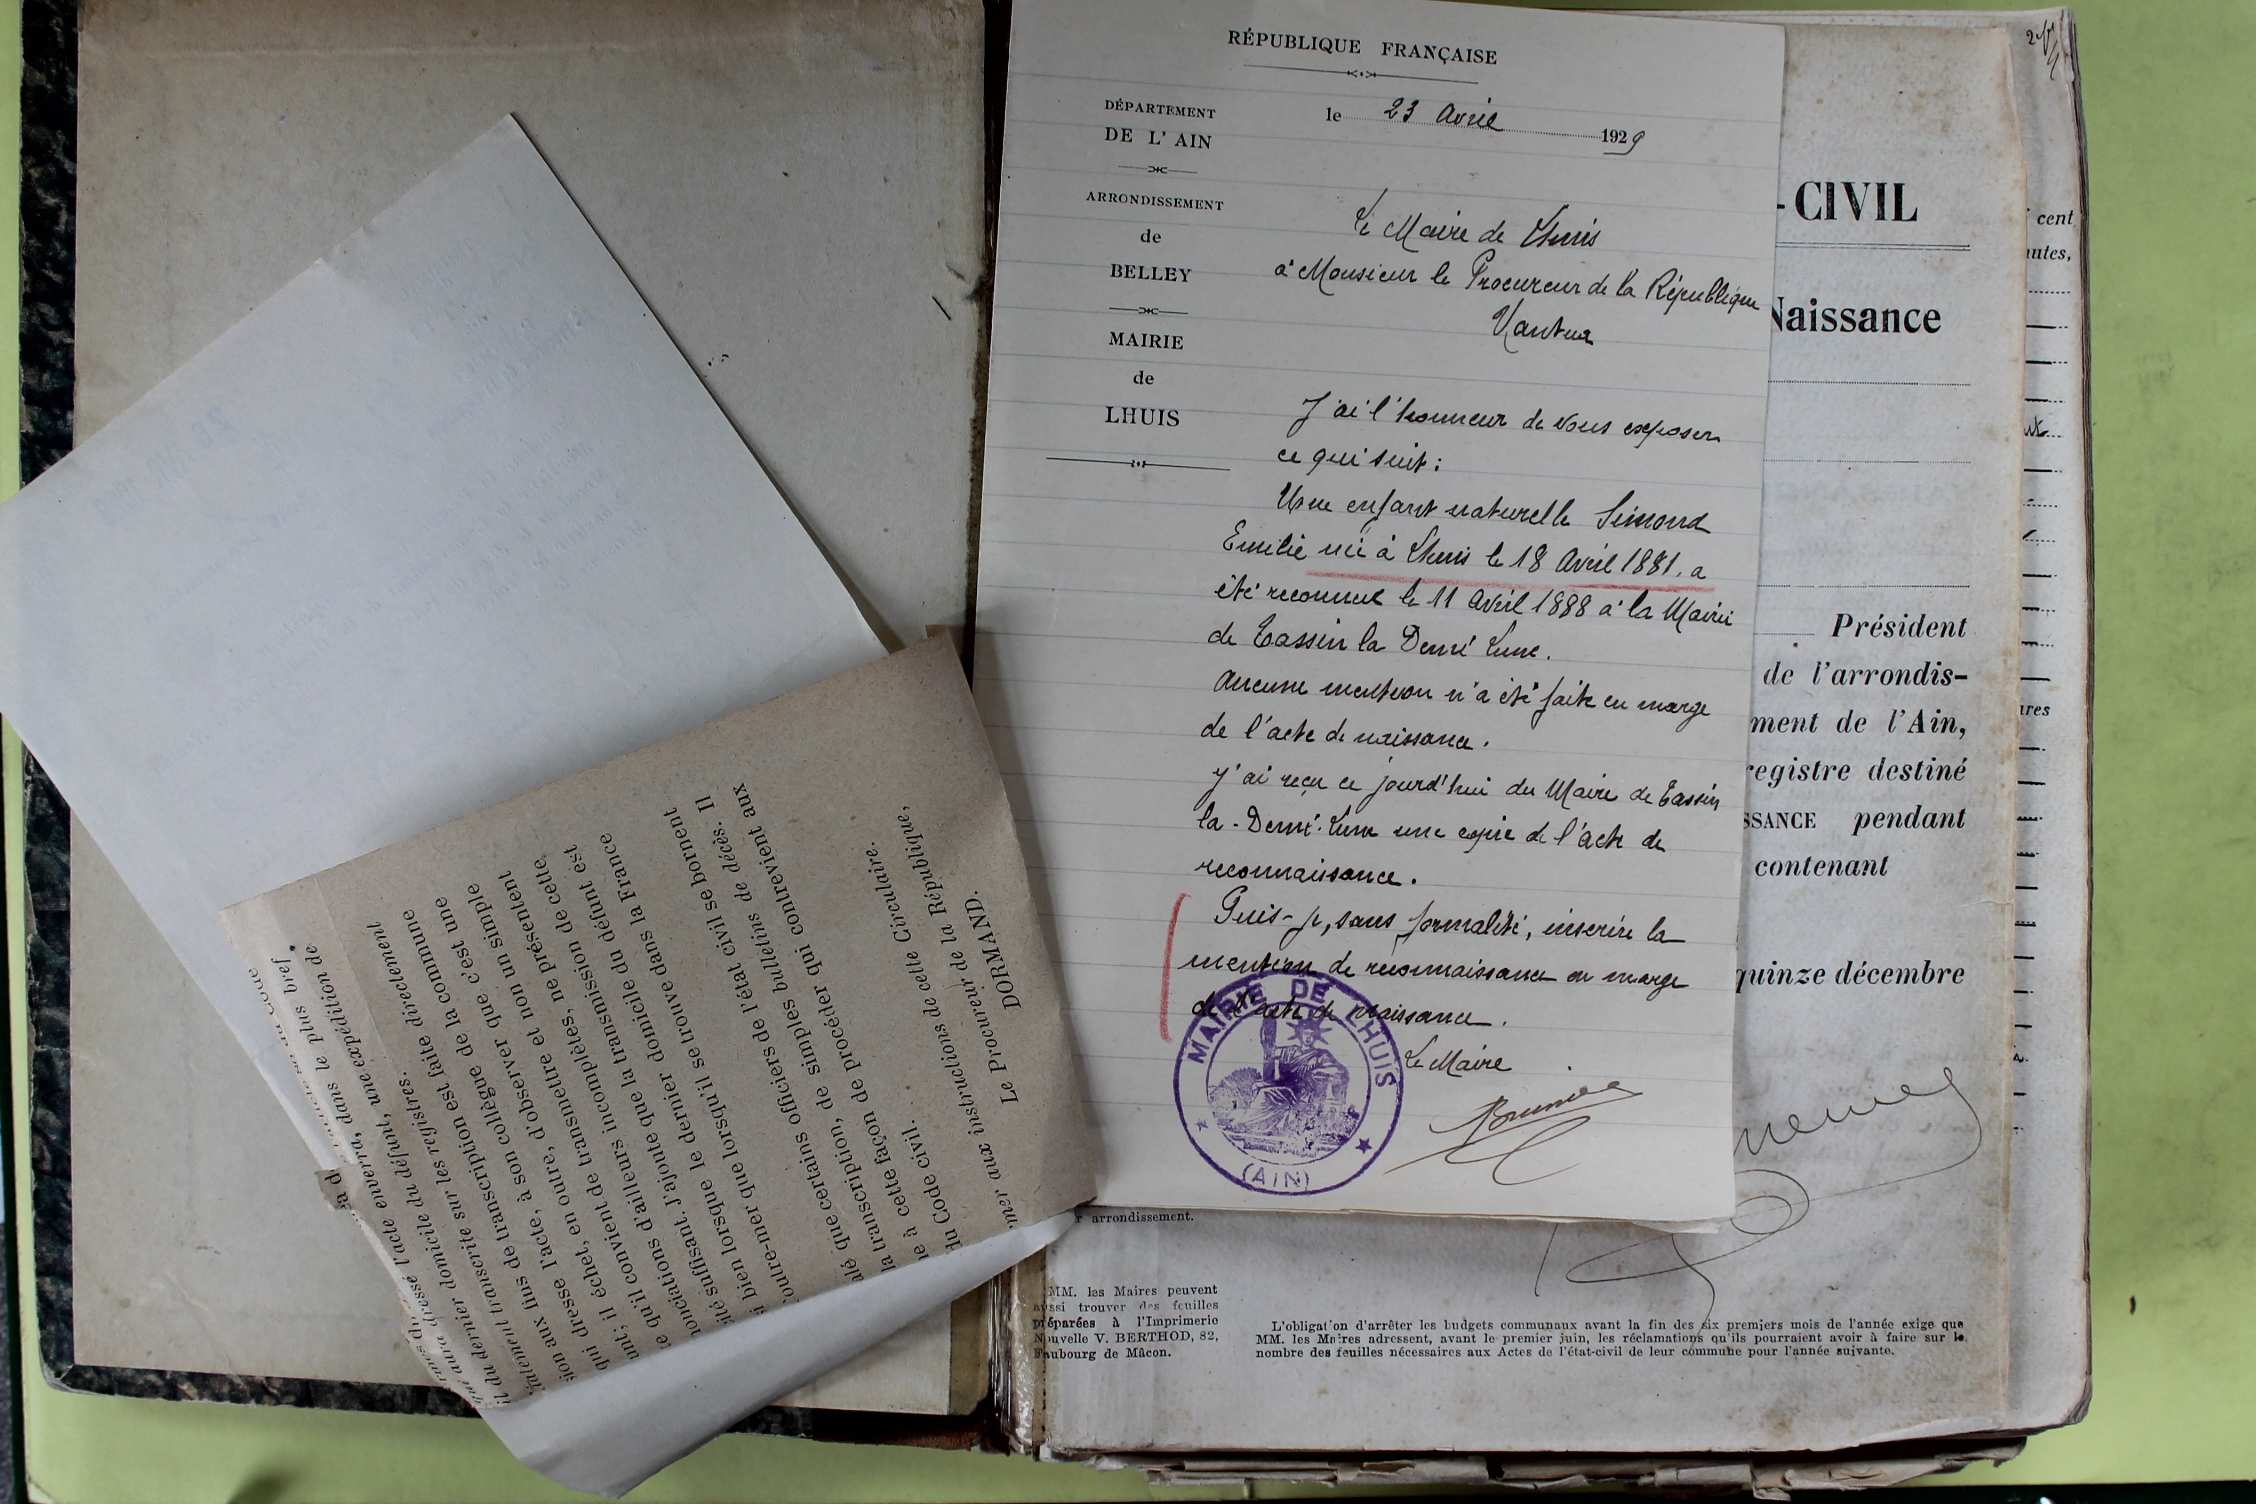 RÉPUBLIQUE FRANÇAISE
DÉPARTEMENT
DE L'AIN
ARRONDISSEMENT
de
BELLEY
MAIRIE
de
LHUIS
le 23 Avril 1929
Le Maire de Lhuis
à Monsieur le Procureur de la République
Nantua
J'ai l'honneur de vous exposer
ce qui suit :
Une enfant naturelle Simond
Emilie née à Lhuis le 18 Avril 1881. a
été reconnue le 11 Avril 1888 à la Mairie
de Tassin la Demi Lune.
Aucune mention n'a été faite en marge
de l'acte de naissance.
J'ai reçu ce jourd'hui du Maire de Tassin
la-Demi-Lune une copie de l'acte de
reconnaissance.
Puis-je, sans formalité, inscrire la
mention de reconnaissance en marge
de l'acte de naissance.
Le Maire
MAIRIE DE LHUIS
(AIN)
-CIVIL
Naissance
Président
de l'arrondis-
ment de l'Ain,
registre destiné
SSANCE pendant
contenant
quinze décembre
r arrondissement.
MM. les Maires peuvent
aussi trouver des feuilles
préparées à l'Imprimerie
Nouvelle V. BERTHOD, 82,
Faubourg de Mâcon.
L'obligation d'arrêter les budgets communaux avant la fin des six premiers mois de l'année exige que
MM. les Maires adressent, avant le premier juin, les réclamations qu'ils pourraient avoir à faire sur le
nombre des feuilles nécessaires aux Actes de l'état-civil de leur commune pour l'année suivante.
cent
utes,
res
dressé l'acte enverra, dans le plus bref
qui aura dressé l'acte enverra, une expédition de
il du dernier domicile du défunt,
intement transcrite sur les registres.
sion aux fins de transcription est faite directement
qui dresse l'acte, à son collègue de la commune
unt; il échet, en outre, d'observer que c'est une
te qu'il convient de transmettre et non un simple
nonciations d'ailleurs incomplètes, ne présentent
ité suffisant. J'ajoute que la transmission de cette
i bien lorsque le dernier domicile du défunt est
outre-mer que lorsqu'il se trouve dans la France
alé que certains officiers de l'état civil se bornent
la transcription, de simples bulletins de décès. Il
e à cette façon de procéder qui contrevient aux
du Code civil.
mer aux instructions de cette Circulaire.
Le Procureur de la République,
DORMAND.